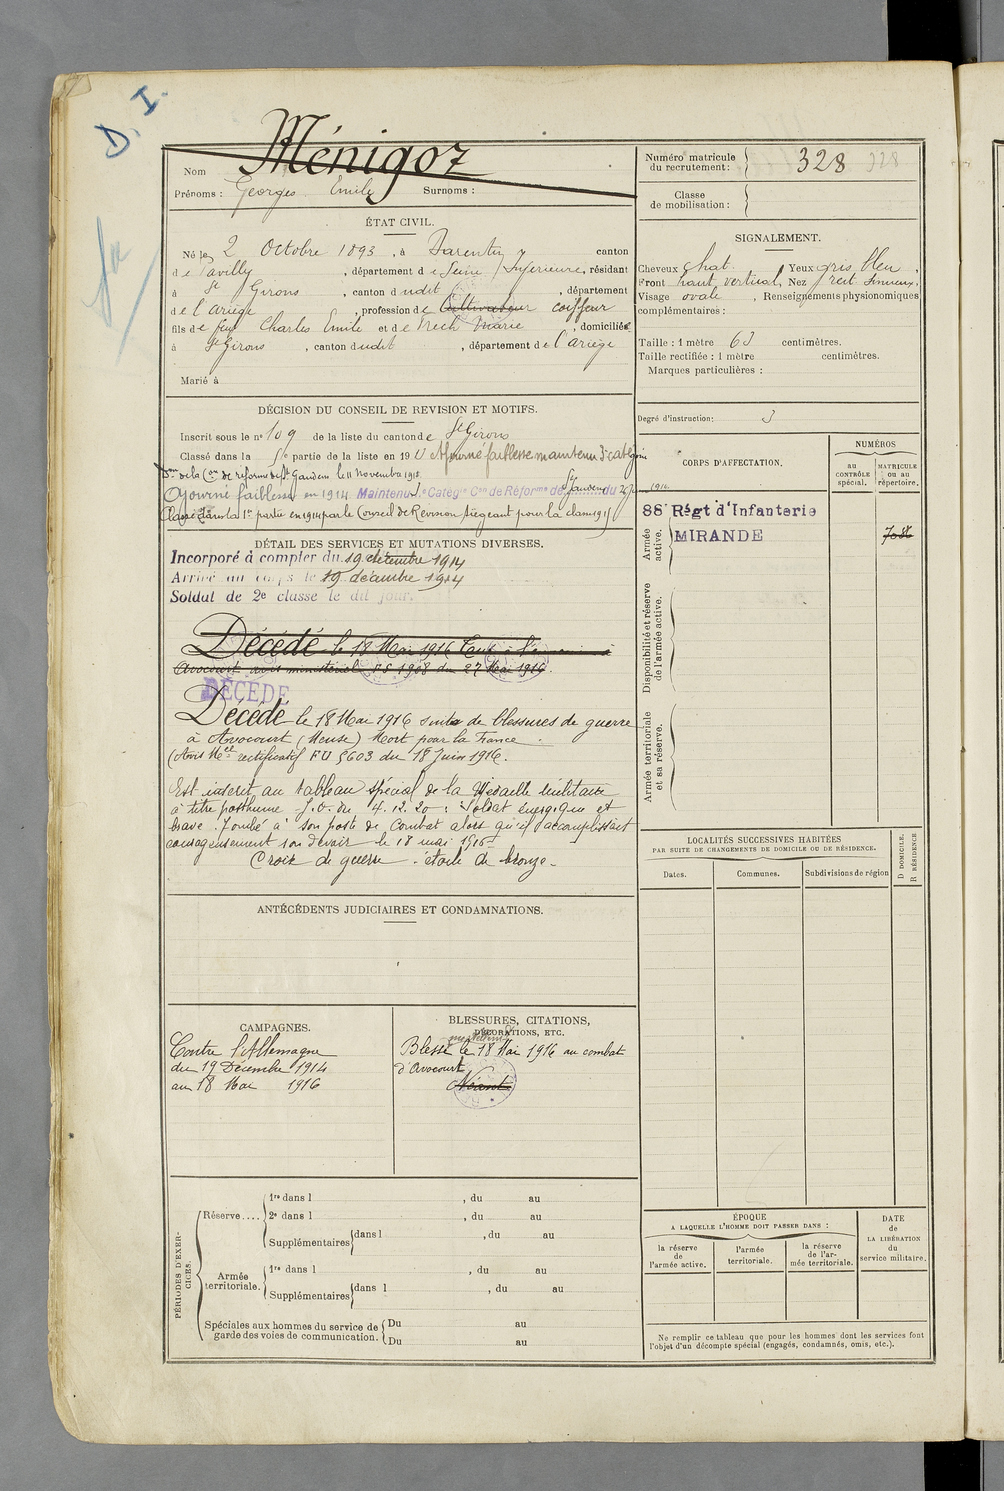 D. I.
Nom Ménigoz
Prénoms : Georges Emile Surnoms :
ÉTAT CIVIL.
Né le 2 Octobre 1893, à Barentin canton
de Pavilly, département de Seine Inférieure, résidant
à St Girons, canton dudit, département
de l'Ariège, profession de Cultivateur coiffeur
fils de feu Charles Emile et de Frech Marie, domiciliés
à St Girons, canton dudit, département de l'Ariège
Marié à
DÉCISION DU CONSEIL DE REVISION ET MOTIFS.
Inscrit sous le n° 109 de la liste du canton de St Girons
Classé dans la 5e partie de la liste en 19 Ajourné faiblesse maintenu
de la Con de réforme de St Gaudens le 11 Novembre 1913.
Ajourné faiblesse en 1914 Maintenu Categie Con de Réforme de St Gaudens du 1914
Classé dans la 1re partie en 1914 par le Conseil de Revision Siegeant pour la classe 1915
DÉTAIL DES SERVICES ET MUTATIONS DIVERSES.
Incorporé à compter du 19 décembre 1914
Arrivé au corps le 19 décembre 1914
Soldat de 2e classe le dit jour.
Décédé le 18 Mai 1916 Tué à l'ennemi
Avocourt avis ministériel FS 1908 du 27 Mai 1916.
DÉCÉDÉ
Décédé le 18 Mai 1916 suite de blessures de guerre
à Avocourt (Meuse) Mort pour la France.
(Avis Mel rectificatif FU 5603 du 18 Juin 1916.
Est inscrit au tableau spécial de la Médaille militaire
à titre posthume J.O. du 4.12.20 : Soldat énergique et
brave. Tombé à son poste de Combat alors qu'il accomplissait
courageusement son devoir le 18 mai 1916
Croix de guerre - étoile de bronze -
ANTÉCÉDENTS JUDICIAIRES ET CONDAMNATIONS.
CAMPAGNES.
Contre l'Allemagne
du 19 Décembre 1914
au 18 Mai 1916
BLESSURES, CITATIONS,
DÉCORATIONS, ETC.
mortellement
Blessé le 18 Mai 1916 au combat
d'Avocourt
Néant
PÉRIODES D'EXERCICES.
Réserve....
1re dans l , du au
2e dans l , du au
Supplémentaires dans l , du au
Armée territoriale.
1re dans l , du au
Supplémentaires dans l , du au
Spéciales aux hommes du service de
garde des voies de communication.
Du au
Du au
Numéro matricule
du recrutement : 328 328
Classe
de mobilisation :
SIGNALEMENT.
Cheveux chat. Yeux gris bleu,
Front haut vertical, Nez rect sinueux,
Visage ovale, Renseignements physionomiques
complémentaires :
Taille : 1 mètre 63 centimètres.
Taille rectifiée : 1 mètre centimètres.
Marques particulières :
Degré d'instruction : 3
CORPS D'AFFECTATION.
NUMÉROS
AU CONTRÔLE spécial.
MATRICULE OU AU répertoire.
Armée active.
88e Régt d'Infanterie
MIRANDE
7086
Disponibilité et réserve de l'armée active.
Armée territoriale et sa réserve.
LOCALITÉS SUCCESSIVES HABITÉES
PAR SUITE DE CHANGEMENTS DE DOMICILE OU DE RÉSIDENCE.
Dates.
Communes.
Subdivisions de région
D DOMICILE.
R RÉSIDENCE
ÉPOQUE
A LAQUELLE L'HOMME DOIT PASSER DANS :
la réserve de l'armée active.
l'armée territoriale.
la réserve de l'armée territoriale.
DATE de LA LIBÉRATION du service militaire.
Ne remplir ce tableau que pour les hommes dont les services font
l'objet d'un décompte spécial (engagés, condamnés, omis, etc.).